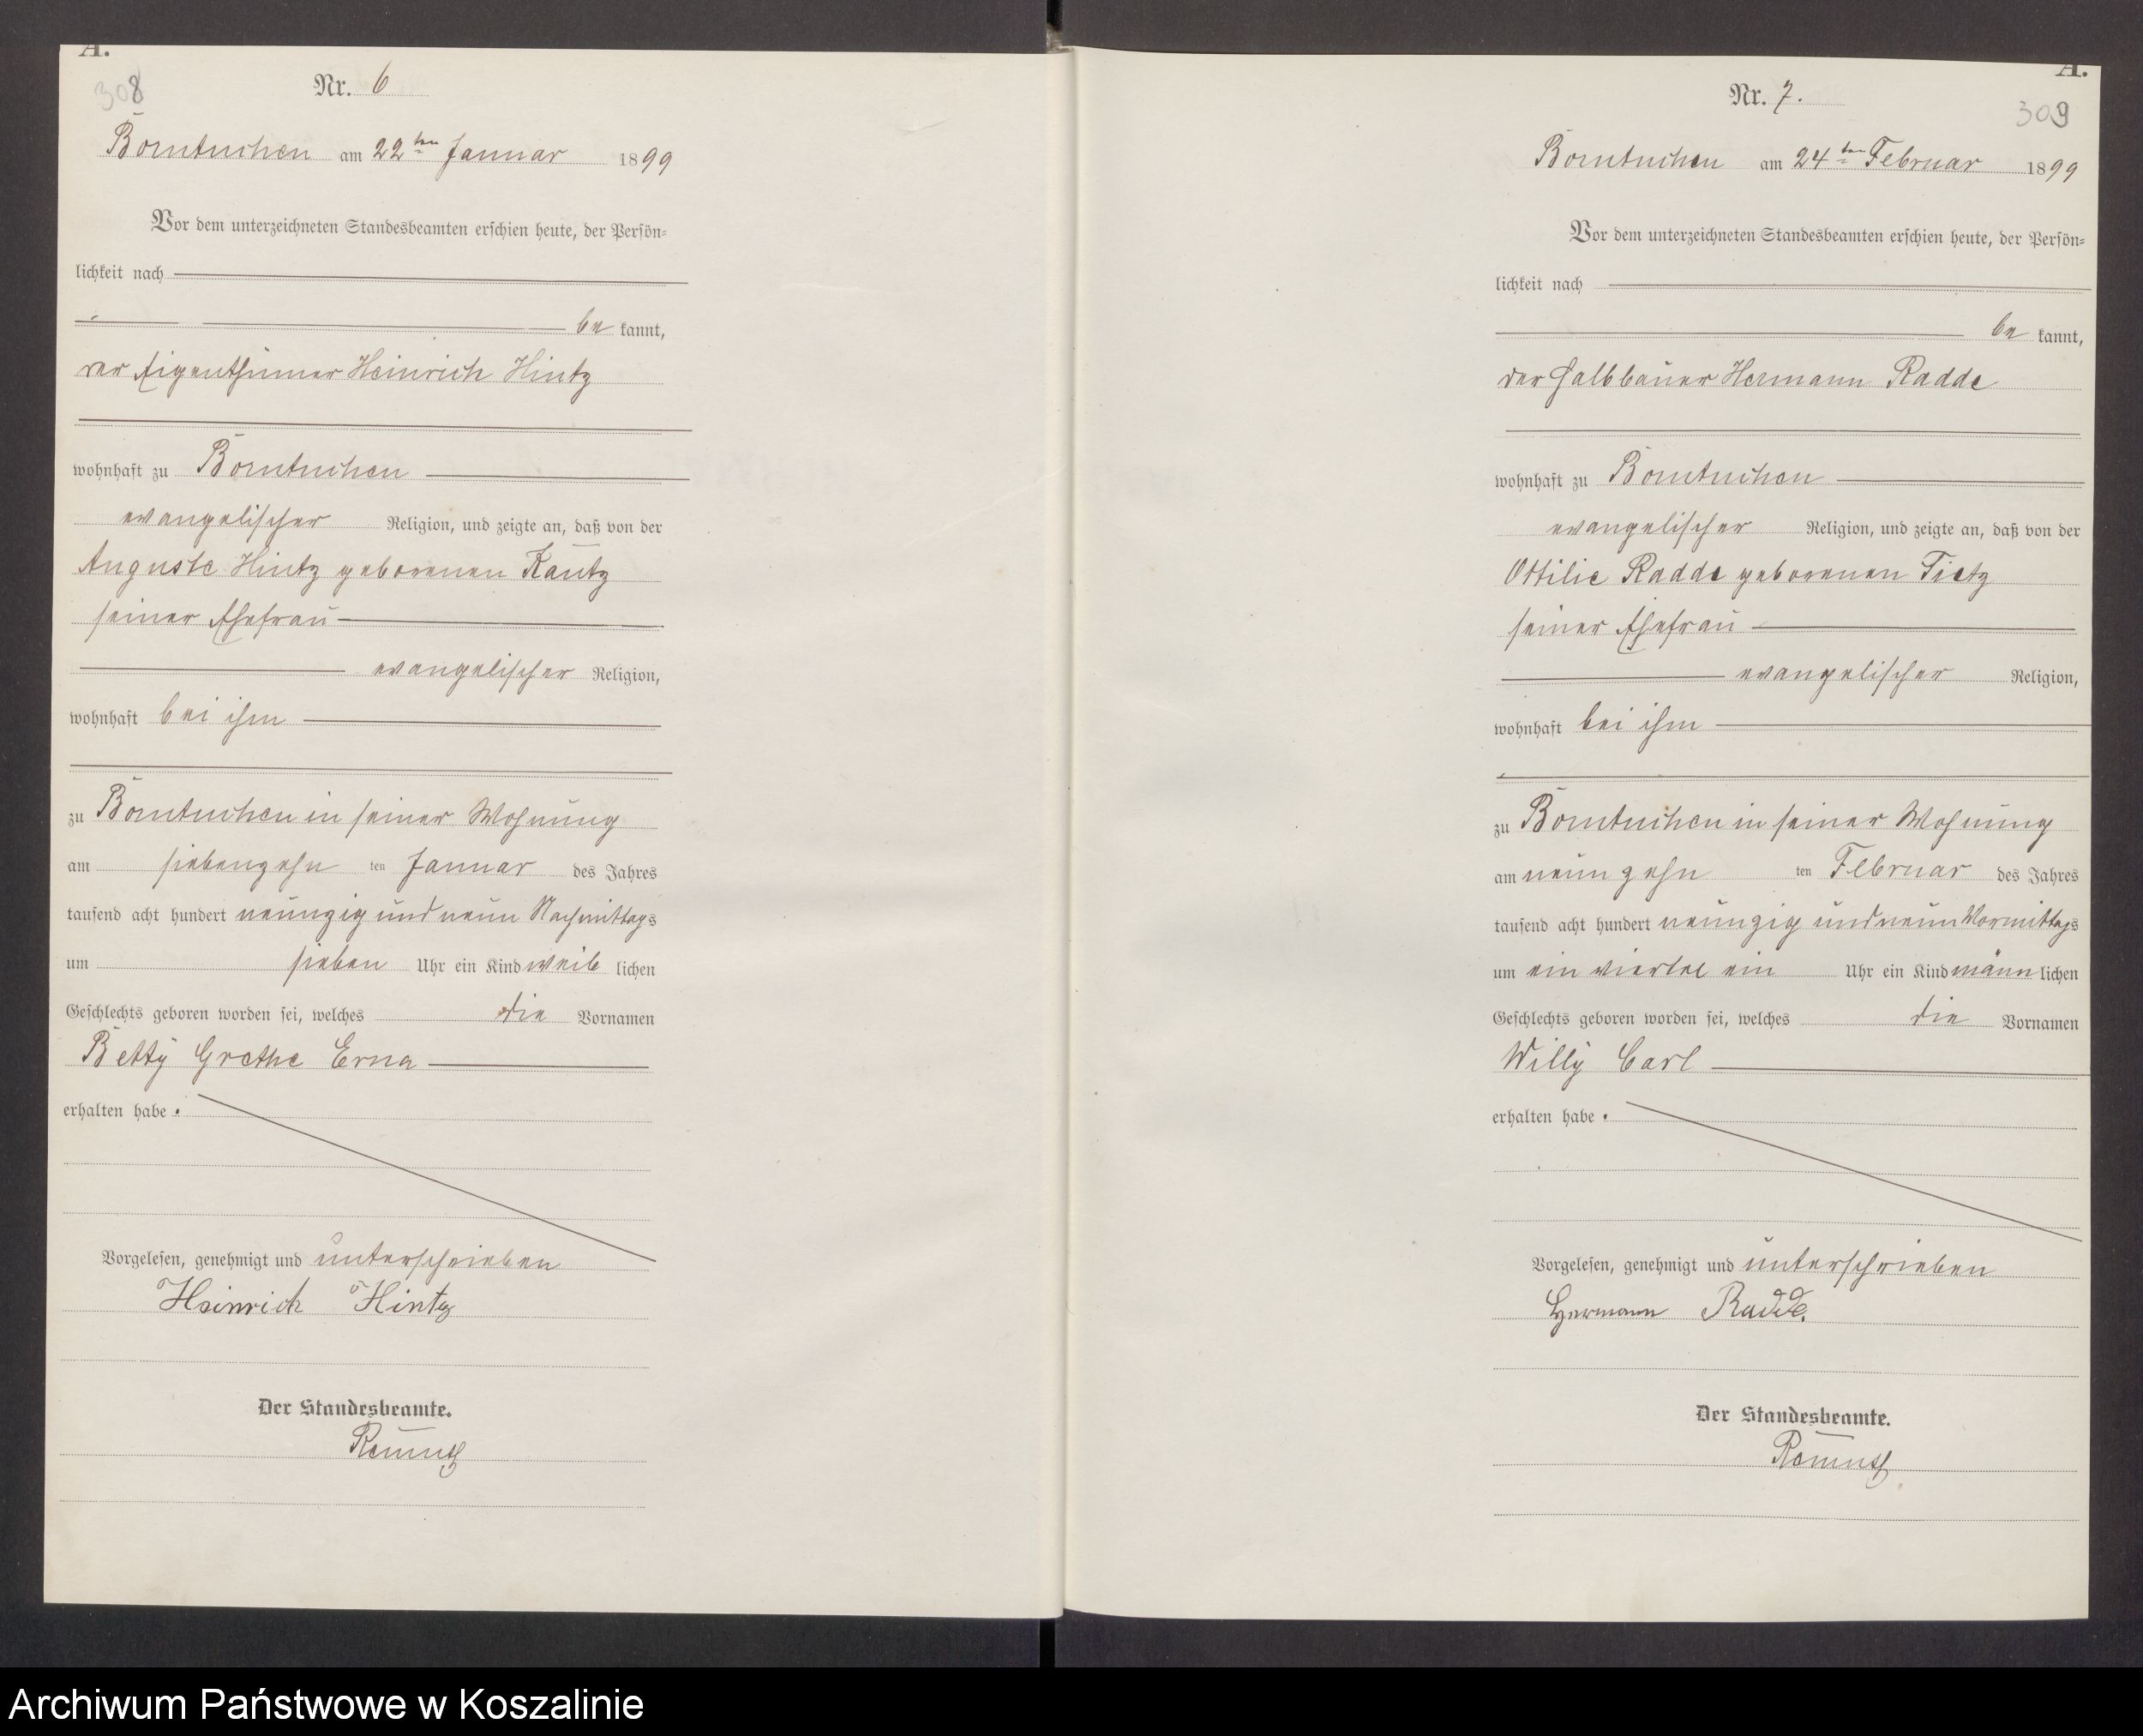 A.
308
Nr. 6
Borntuchen am 22ten Januar 1899
Vor dem unterzeichneten Standesbeamten erschien heute, der Persön-
lichkeit nach
be kannt,
der Eigenthümer Heinrich Hintz
wohnhaft zu Borntuchen
evangelischer Religion, und zeigte an, daß von der
Auguste Hintz geborenen Kautz
seiner Ehefrau
evangelischer Religion,
wohnhaft bei ihm
zu Borntuchen in seiner Wohnung
am siebenzehn ten Januar des Jahres
tausend acht hundert neunzig und neun Nachmittags
um sieben Uhr ein Kind weib lichen
Geschlechts geboren worden sei, welches die Vornamen
Betty Grethe Erna
erhalten habe.
Vorgelesen, genehmigt und unterschrieben
Heinrich Hintz
Der Standesbeamte.
A.
309
Nr. 7.
Borntuchen am 24ten Februar 1899
Vor dem unterzeichneten Standesbeamten erschien heute, der Persön-
lichkeit nach
be kannt,
der Halbbauer Hermann Radde
wohnhaft zu Borntuchen
evangelischer Religion, und zeigte an, daß von der
Ottilie Radde geborenen Tietz
seiner Ehefrau
evangelischer Religion,
wohnhaft bei ihm
zu Borntuchen in seiner Wohnung
am neunzehn ten Februar des Jahres
tausend acht hundert neunzig und neun Vormittags
um ein viertel ein Uhr ein Kind männ lichen
Geschlechts geboren worden sei, welches die Vornamen
Willy Carl
erhalten habe.
Vorgelesen, genehmigt und unterschrieben
Hermann Radde.
Der Standesbeamte.
Archiwum Państwowe w Koszalinie